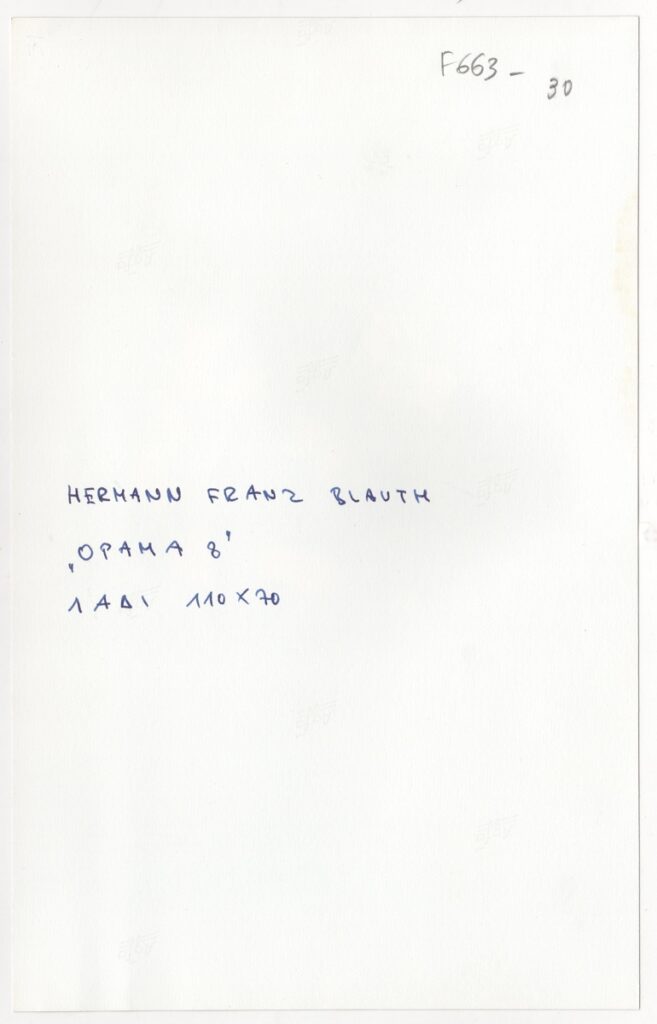 F663-30
HERMANN FRANZ BLAUTH
„ΟΡΑΜΑ 8"
ΛΑΔΙ 110X70